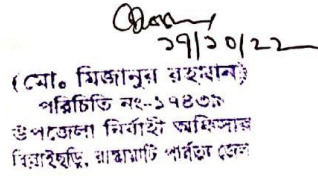 ১৭/১০/২২
(মোঃ মিজানুর রহমান)
পরিচিতি নং-১৭৪৩৯
উপজেলা নির্বাহী অফিসার
বিলাইছড়ি, রাঙ্গামাটি পার্বত্য জেলা